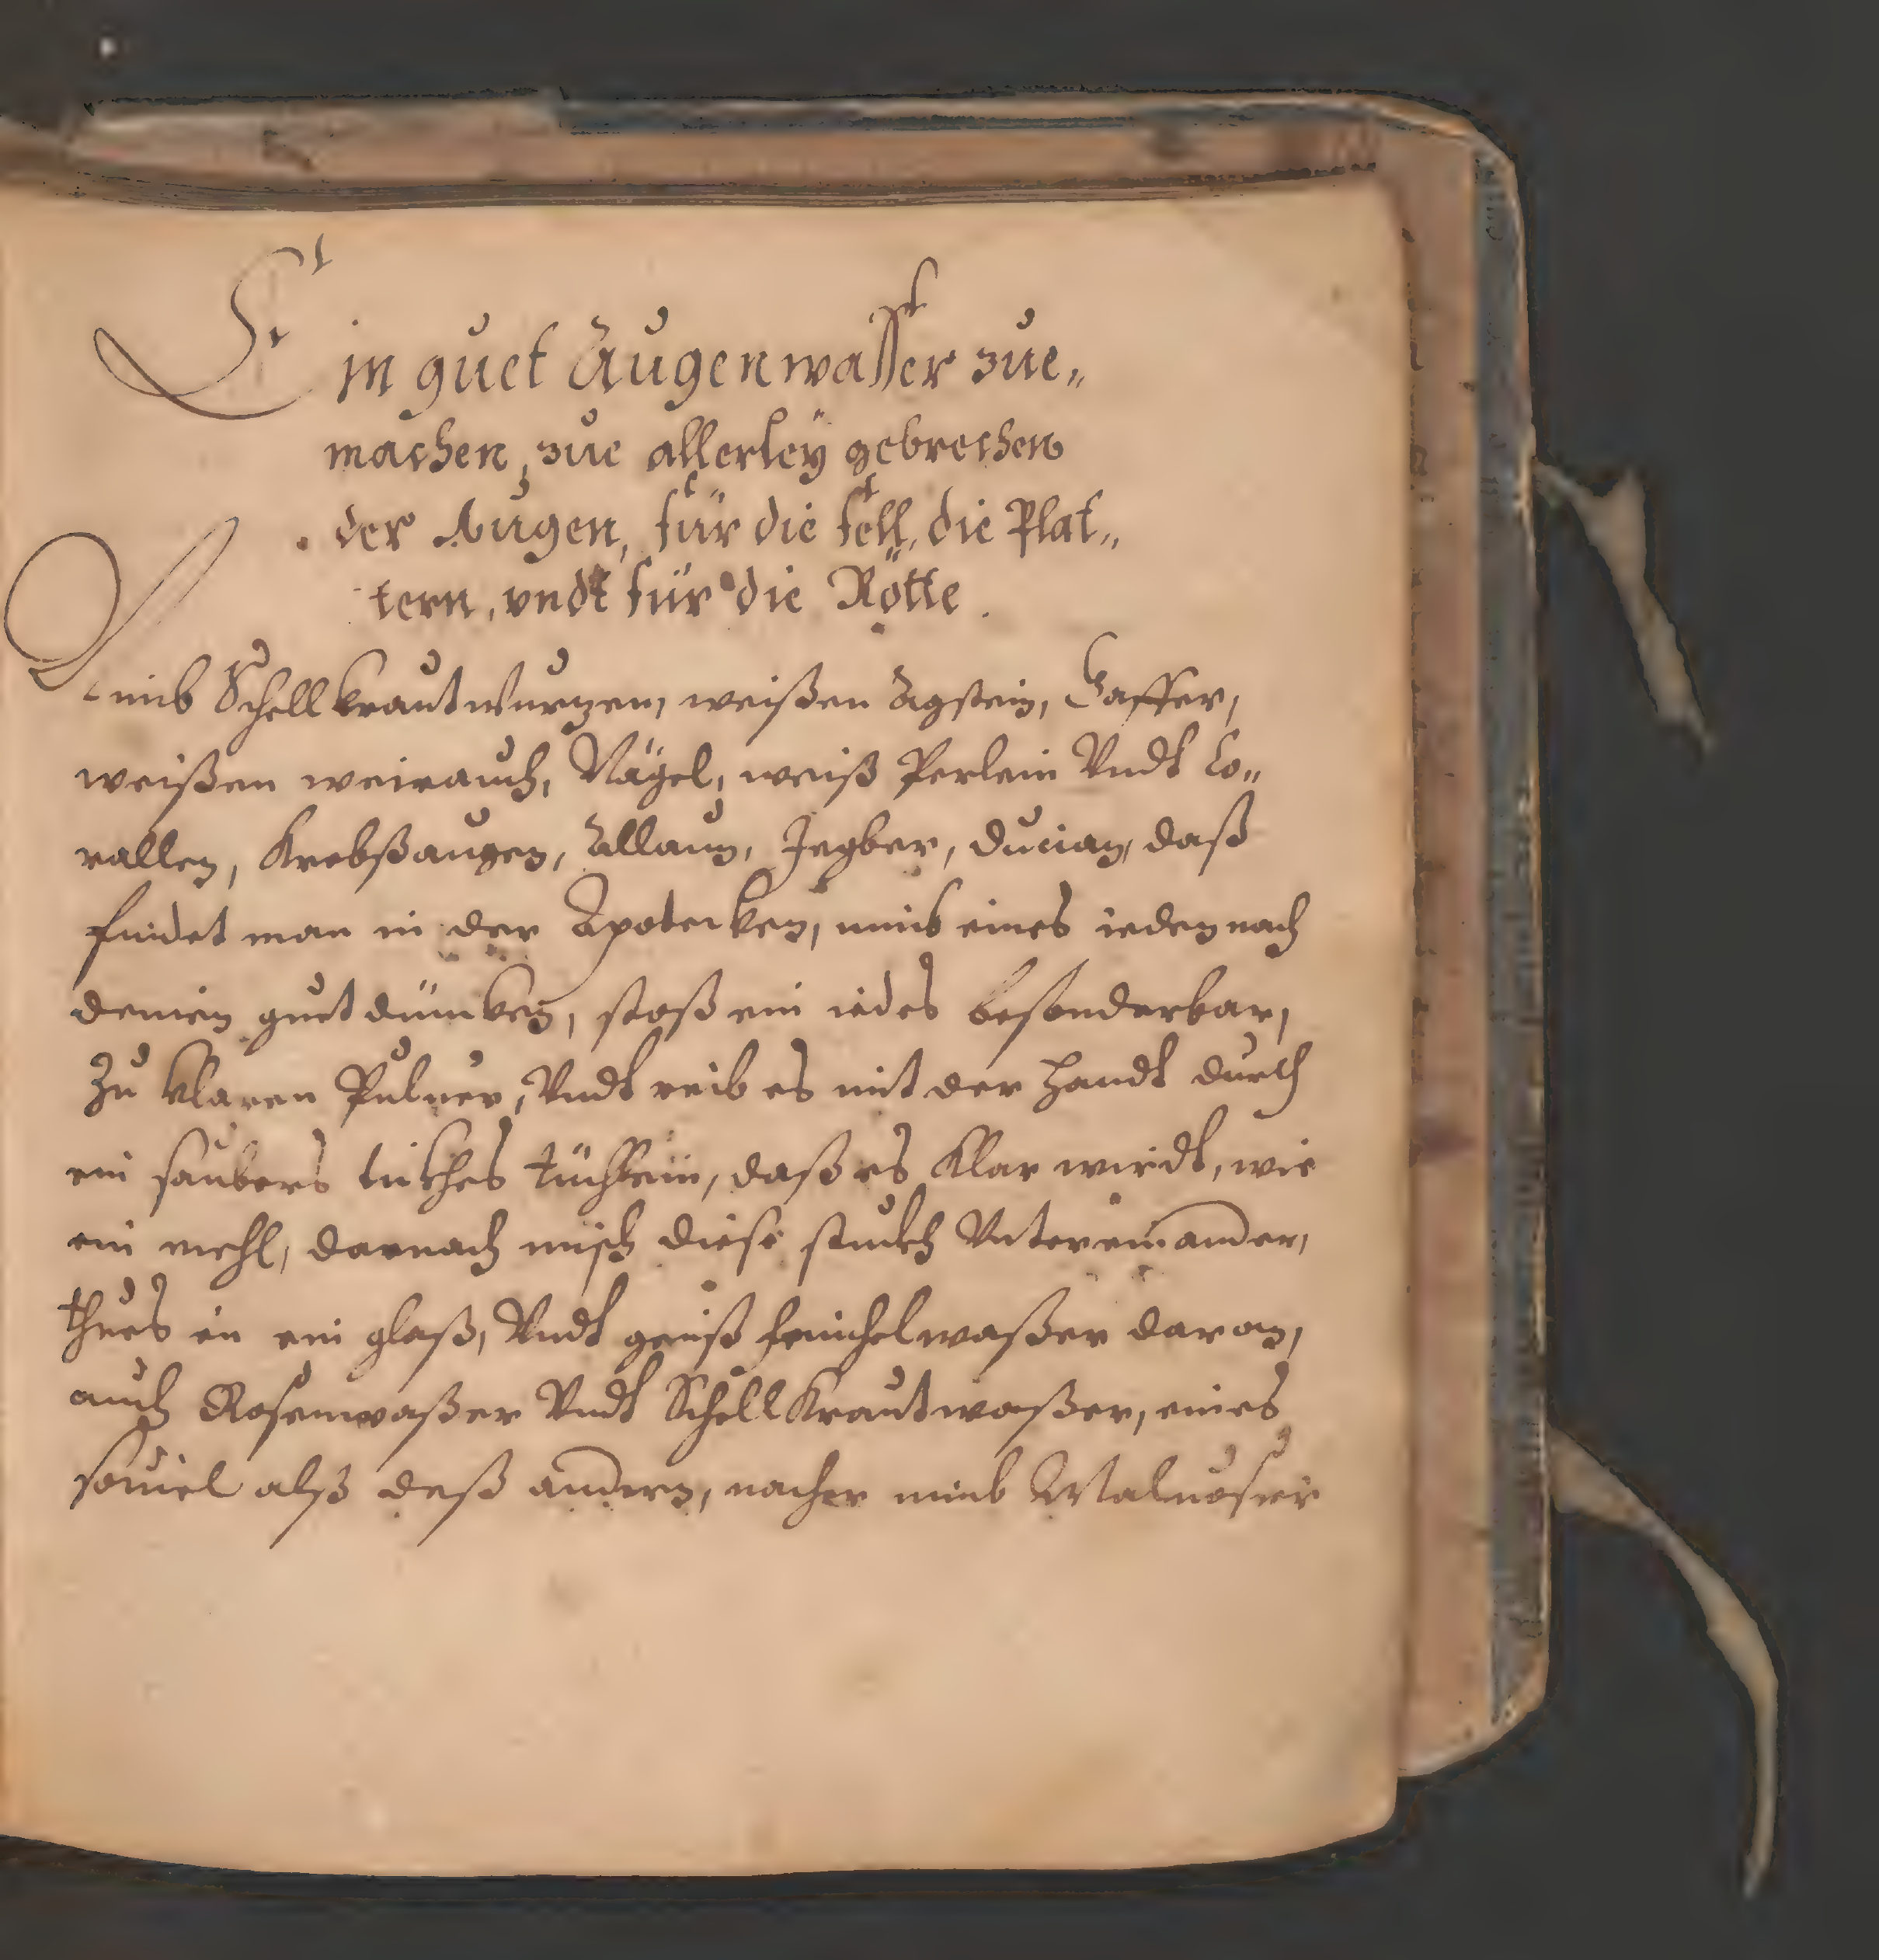 Ein guet Augenwasser zue„
machen, zue allerley gebrechen
der Augen, für die fell, die Plat„
tern, vndt für die Rötte.
Nimb Schellkrautwurzen, weißen Agstein, Caffer,
weißen weirauch, Nägel, weiß Perlein Vndt Co„
rallen, Krebßaugen, Allaun, Ingber, ducian, daß
findet man in der Apotecken, nimb eines ieden nach
deinen guet düncken, stoß ein iedes besonderbar,
Zu klaren Puluer, Vndt reib es mit der Handt durch
ein saubers tüchlein, daß es Klar wirdt, wie
ein mehl, darnach misch diese stuckh Vntereinander,
thues in ein glaß, Vndt geuß fenichelwaßer daran,
auch Rosenwaßer Vndt SchellKrautwaßer, eines
souiel alß deß andern, nacher nimb Maluosier